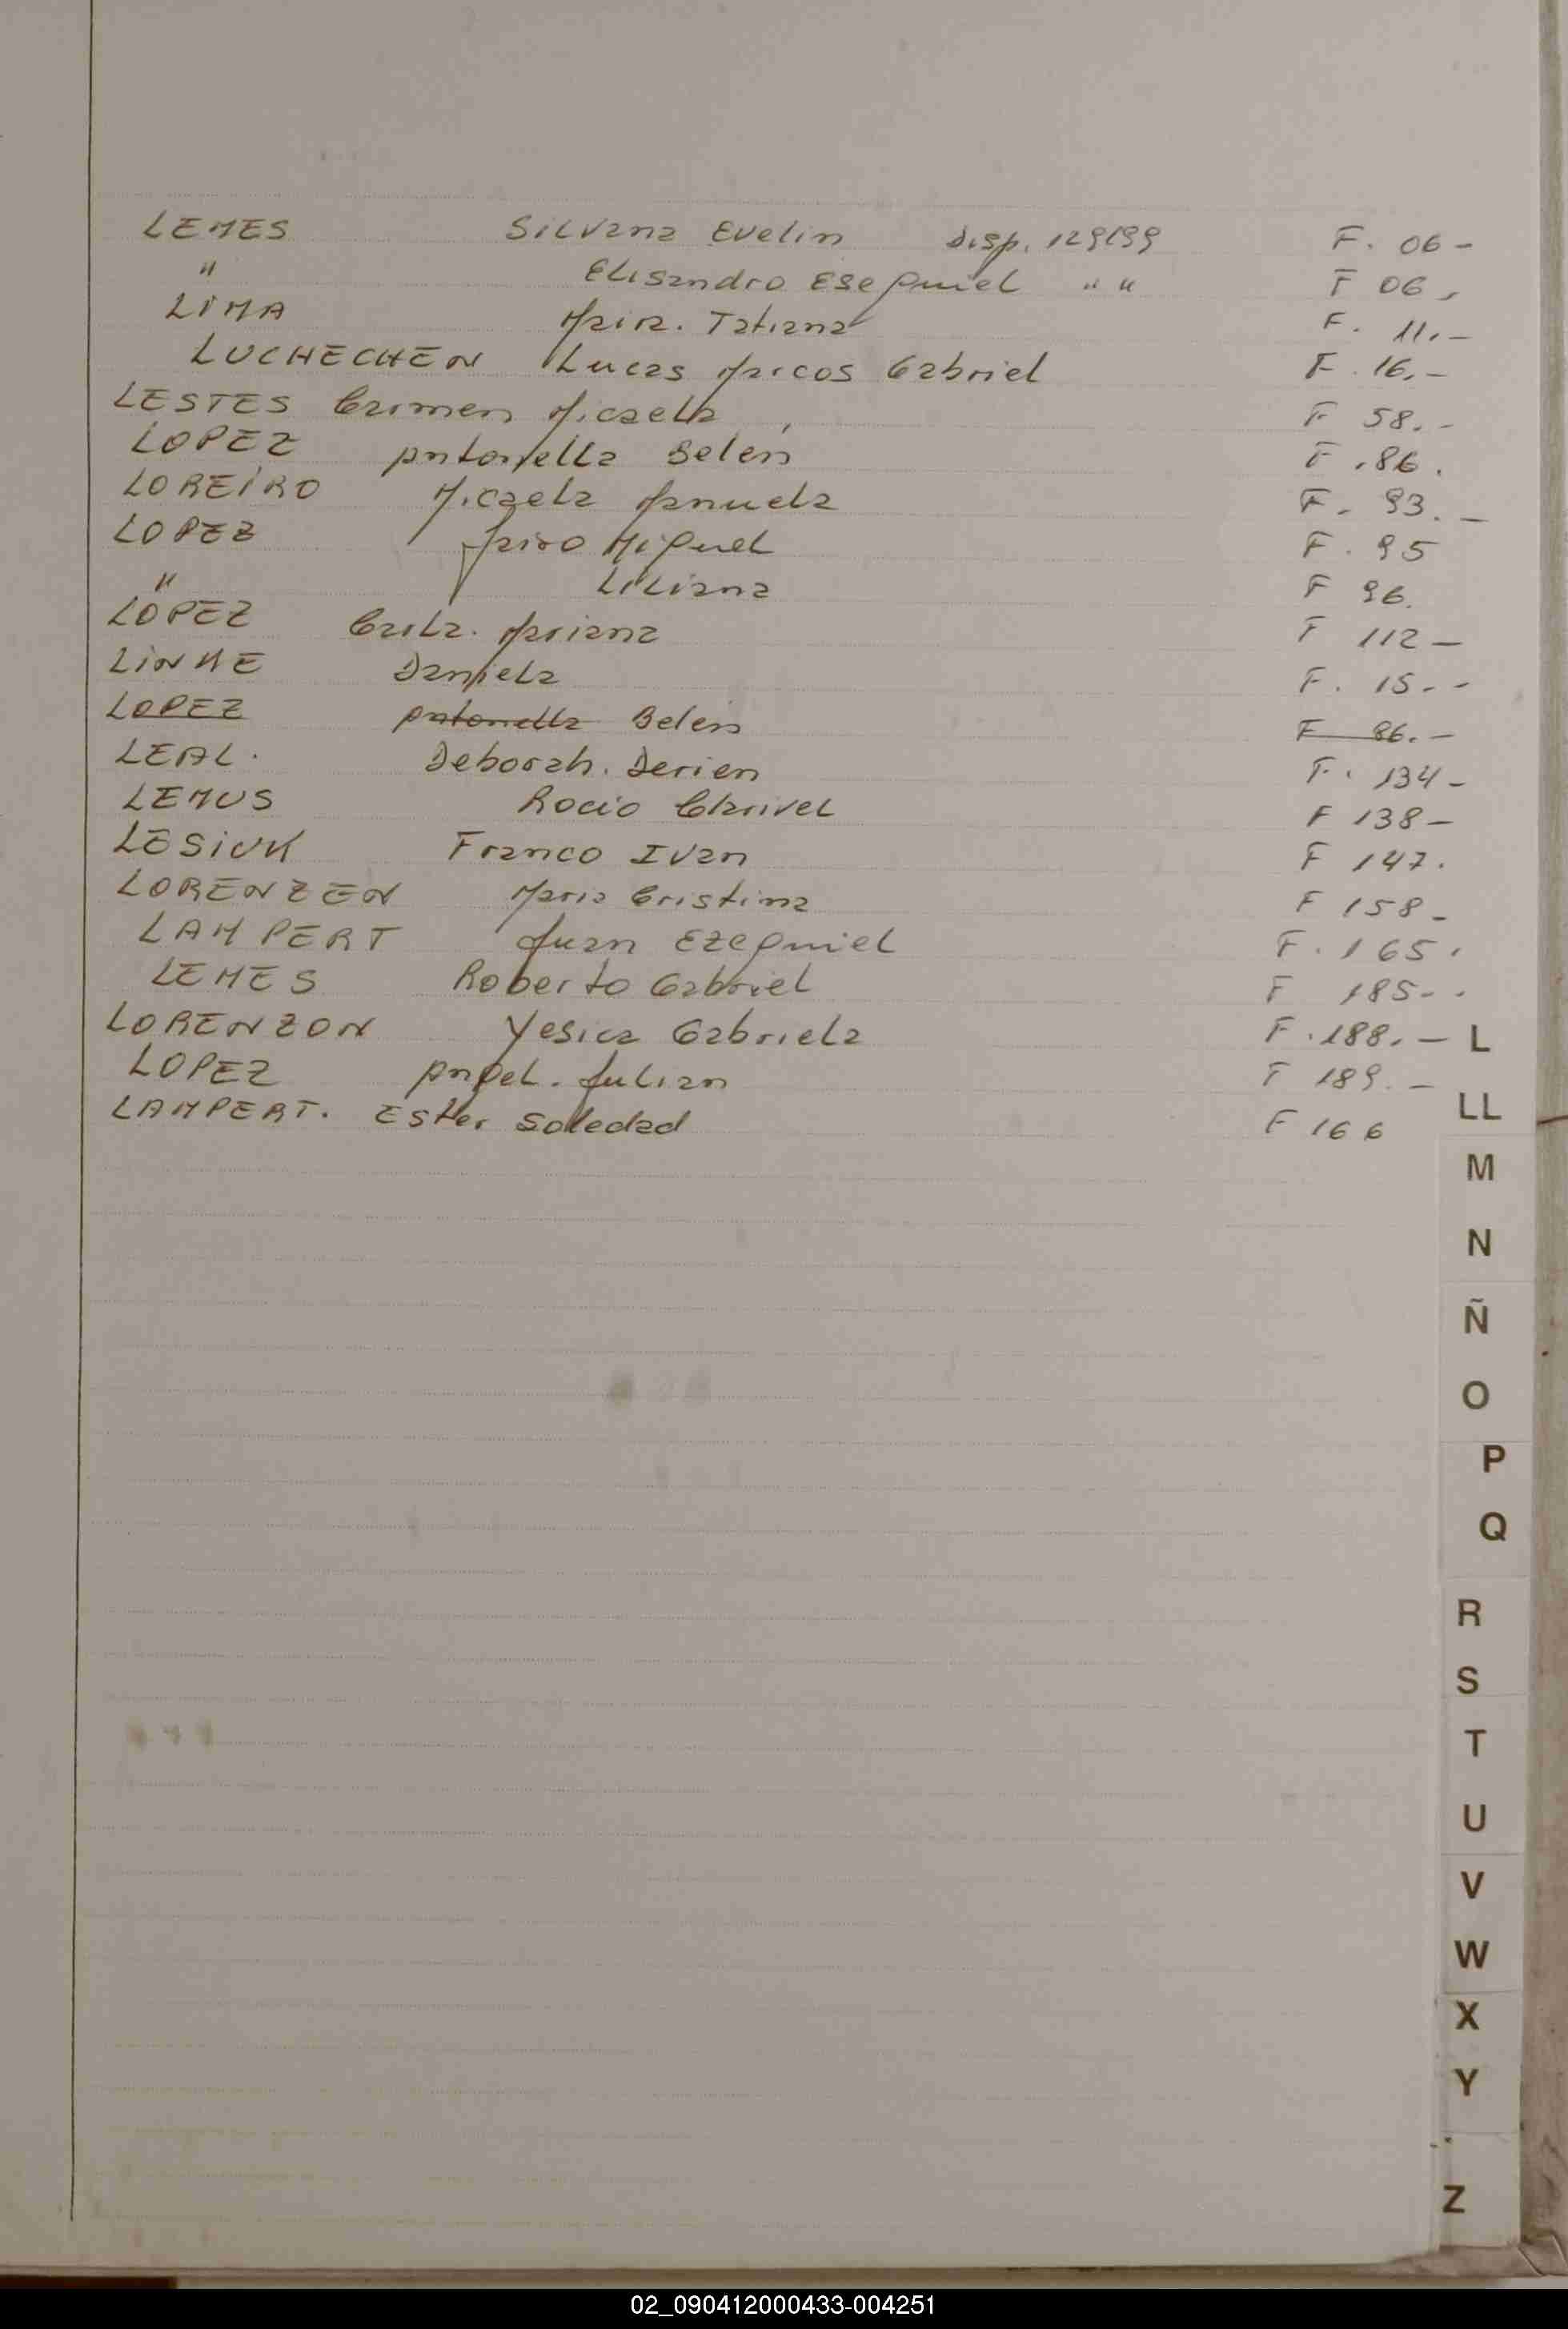 LEMES Silvana Evelin Disp. 129199 F. 06 -
" Elisandro Esequiel " " F 06 -
LIMA Maria. Tatiana F. 11. -
LUCHECHEN Lucas Marcos Gabriel F. 16. -
LESTES Carmen Micaela F 58. -
LOPEZ Antonella Belen F. 86.
LOREIRO Micaela Manuela F. 93. -
LOPEZ Mario Miguel F. 95
" Liliana F 96.
LOPEZ Carla. Mariana F 112 -
LINKE Daniela F. 15. -
LOPEZ Antonella Belen F 86. -
LEAL. Deborah. Derien F. 134 -
LEMUS Rocio Clarivel F 138 -
LESIUK Franco Ivan F 147.
LORENZEN Maria Cristina F 158 -
LAMPERT Juan Ezequiel F. 165.
LEMES Roberto Gabriel F 185 - .
LORENZON Yesica Gabriela F. 188. -
LOPEZ Angel. Julian F 189. -
LAMPERT. Ester Soledad F 166
L
LL
M
N
Ñ
O
P
Q
R
S
T
U
V
W
X
Y
Z
02_090412000433-004251